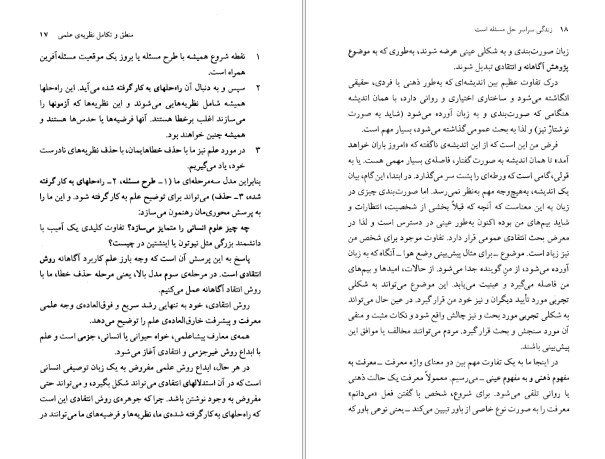 منطق و تکامل نظریه‌ی علمی ۱۷
۱ نقطه شروع همیشه با طرح مسئله یا بروز یک موقعیت مسئله‌آفرین
همراه است.
۲ سپس و به دنبال آن راه‌حلهای به کار گرفته شده می‌آید. این راه‌حلها
همیشه شامل نظریه‌هایی می‌شوند و این نظریه‌ها که آزمونها را
می‌سازند اغلب برخطا هستند. آنها فرضیه‌ها یا حدس‌ها هستند و
همیشه چنین خواهند بود.
۳ در مورد علم نیز ما با حذف خطاهایمان، با حذف نظریه‌های نادرست
خود، یاد می‌گیریم.
بنابراین مدل سه‌مرحله‌ای ما (۱ـ طرح مسئله، ۲ـ راه‌حلهای به کار گرفته
شده، ۳ـ حذف) می‌تواند برای توضیح علم به کار گرفته شود. و این ما را
به پرسش محوری‌مان رهنمون می‌سازد:
چه چیز علوم انسانی را متمایز می‌سازد؟ تفاوت کلیدی یک آمیب با
دانشمند بزرگی مثل نیوتون یا اینشتین در چیست؟
پاسخ به این پرسش آن است که وجه بارز علم کاربرد آگاهانه روش
انتقادی است. در مرحله‌ی سوم مدل بالا، یعنی مرحله حذف خطا، ما با
روش انتقاد آگاهانه عمل می‌کنیم.
روش انتقادی، خود به تنهایی رشد سریع و فوق‌العاده‌ی وجه علمی
معرفت و پیشرفت خارق‌العاده علم را توضیح می‌دهد.
همه‌ی معارف پیشاعلمی، خواه حیوانی یا انسانی، جزمی است و علم
با ابداع روش غیرجزمی و انتقادی آغاز می‌شود.
در هر حال، ابداع روش علمی مفروض به یک زبان توصیفی انسانی
است که در آن استدلالهای انتقادی می‌تواند شکل بگیرد، و می‌تواند حتی
مفروض به وجود نوشتن باشد. چرا که جوهره‌ی روش انتقادی این است
که راه‌حلهای به کار گرفته شده‌ی ما، نظریه‌ها و فرضیه‌های ما می‌توانند در
۱۸ زندگی سراسر حل مسئله است
زبان صورت‌بندی و به شکلی عینی عرضه شوند، به‌طوری که به موضوع
پژوهش آگاهانه و انتقادی تبدیل شوند.
درک تفاوت عظیم بین اندیشه‌ای که به‌طور ذهنی یا فردی، حقیقی
انگاشته می‌شود و ساختاری اختیاری و روانی دارد، با همان اندیشه
هنگامی که صورت‌بندی و به زبان آورده می‌شود (شاید به صورت
نوشتار نیز) و لذا به بحث عمومی گذاشته می‌شود، بسیار مهم است.
فرض من این است که از این اندیشه‌ی ناگفته که «امروز باران خواهد
آمد» تا همان اندیشه به صورت گفتار، فاصله‌ی بسیار مهمی هست. یا به
قولی، گامی است که ورطه‌ای را پشت سر می‌گذارد. در ابتدا، این گام، بیان
یک اندیشه، به‌هیچ‌وجه مهم به‌نظر نمی‌رسد. اما صورت‌بندی چیزی در
زبان به این معناست که آنچه که قبلاً بخشی از شخصیت، انتظارات و
شاید بیم‌های من بوده اکنون به‌طور عینی در دسترس است و لذا در
معرض بحث انتقادی عمومی قرار دارد. تفاوت موجود برای شخص من
نیز زیاد است. موضوع ــ برای مثال پیش‌بینی وضع هوا ــ آنگاه که به زبان
آورده می‌شود، از منِ گوینده جدا می‌شود. از حالات، امیدها و بیم‌های
من فاصله می‌گیرد و عینیت می‌یابد. این موضوع می‌تواند به شکلی
تجربی مورد تأیید دیگران و نیز خود من قرار گیرد. موضوع می‌تواند
به شکلی تجربی مورد بحث و نیز چالش واقع شود و نکات مثبت و منفی
آن مورد سنجش و بحث قرار گیرد. مردم می‌توانند مخالف یا موافق این
پیش‌بینی باشند.
در اینجا ما به یک تفاوت مهم بین دو معنای واژه معرفت ــ معرفت به
مفهوم ذهنی و به مفهوم عینی ــ می‌رسیم. معمولاً معرفت یک حالت ذهنی
یا روانی تلقی می‌شود. برای شروع، شخص با گفتن فعل «می‌دانم»
معرفت را به صورت نوع خاصی از باور تبیین می‌کند ــ یعنی نوعی باور که